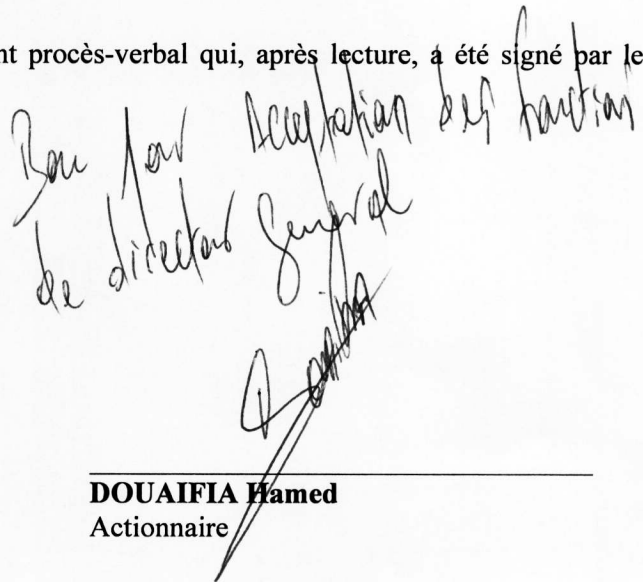 nt procès-verbal qui, après lecture, a été signé par le
Bon pour Acceptation des fonction
de directeur General
DOUAIFIA Hamed
Actionnaire